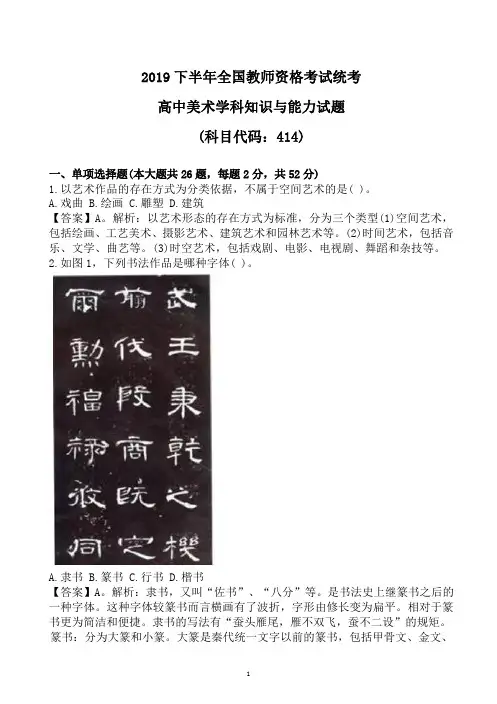 2019下半年全国教师资格考试统考
高中美术学科知识与能力试题
(科目代码：414)
一、单项选择题(本大题共26题，每题2分，共52分)
1.以艺术作品的存在方式为分类依据，不属于空间艺术的是( )。
A.戏曲 B.绘画 C.雕塑 D.建筑
【答案】A。解析：以艺术形态的存在方式为标准，分为三个类型(1)空间艺术，
包括绘画、工艺美术、摄影艺术、建筑艺术和园林艺术等。(2)时间艺术，包括音
乐、文学、曲艺等。(3)时空艺术，包括戏剧、电影、电视剧、舞蹈和杂技等。
2.如图1，下列书法作品是哪种字体( )。
武王秉乾之機
翦伐殷商既定
爾勳福祿攸同
A.隶书 B.篆书 C.行书 D.楷书
【答案】A。解析：隶书，又叫“佐书”、“八分”等。是书法史上继篆书之后的
一种字体。这种字体较篆书而言横画有了波折，字形由修长变为扁平。相对于篆
书更为简洁和便捷。隶书的写法有“蚕头雁尾，雁不双飞，蚕不二设”的规矩。
篆书：分为大篆和小篆。大篆是秦代统一文字以前的篆书，包括甲骨文、金文、
1